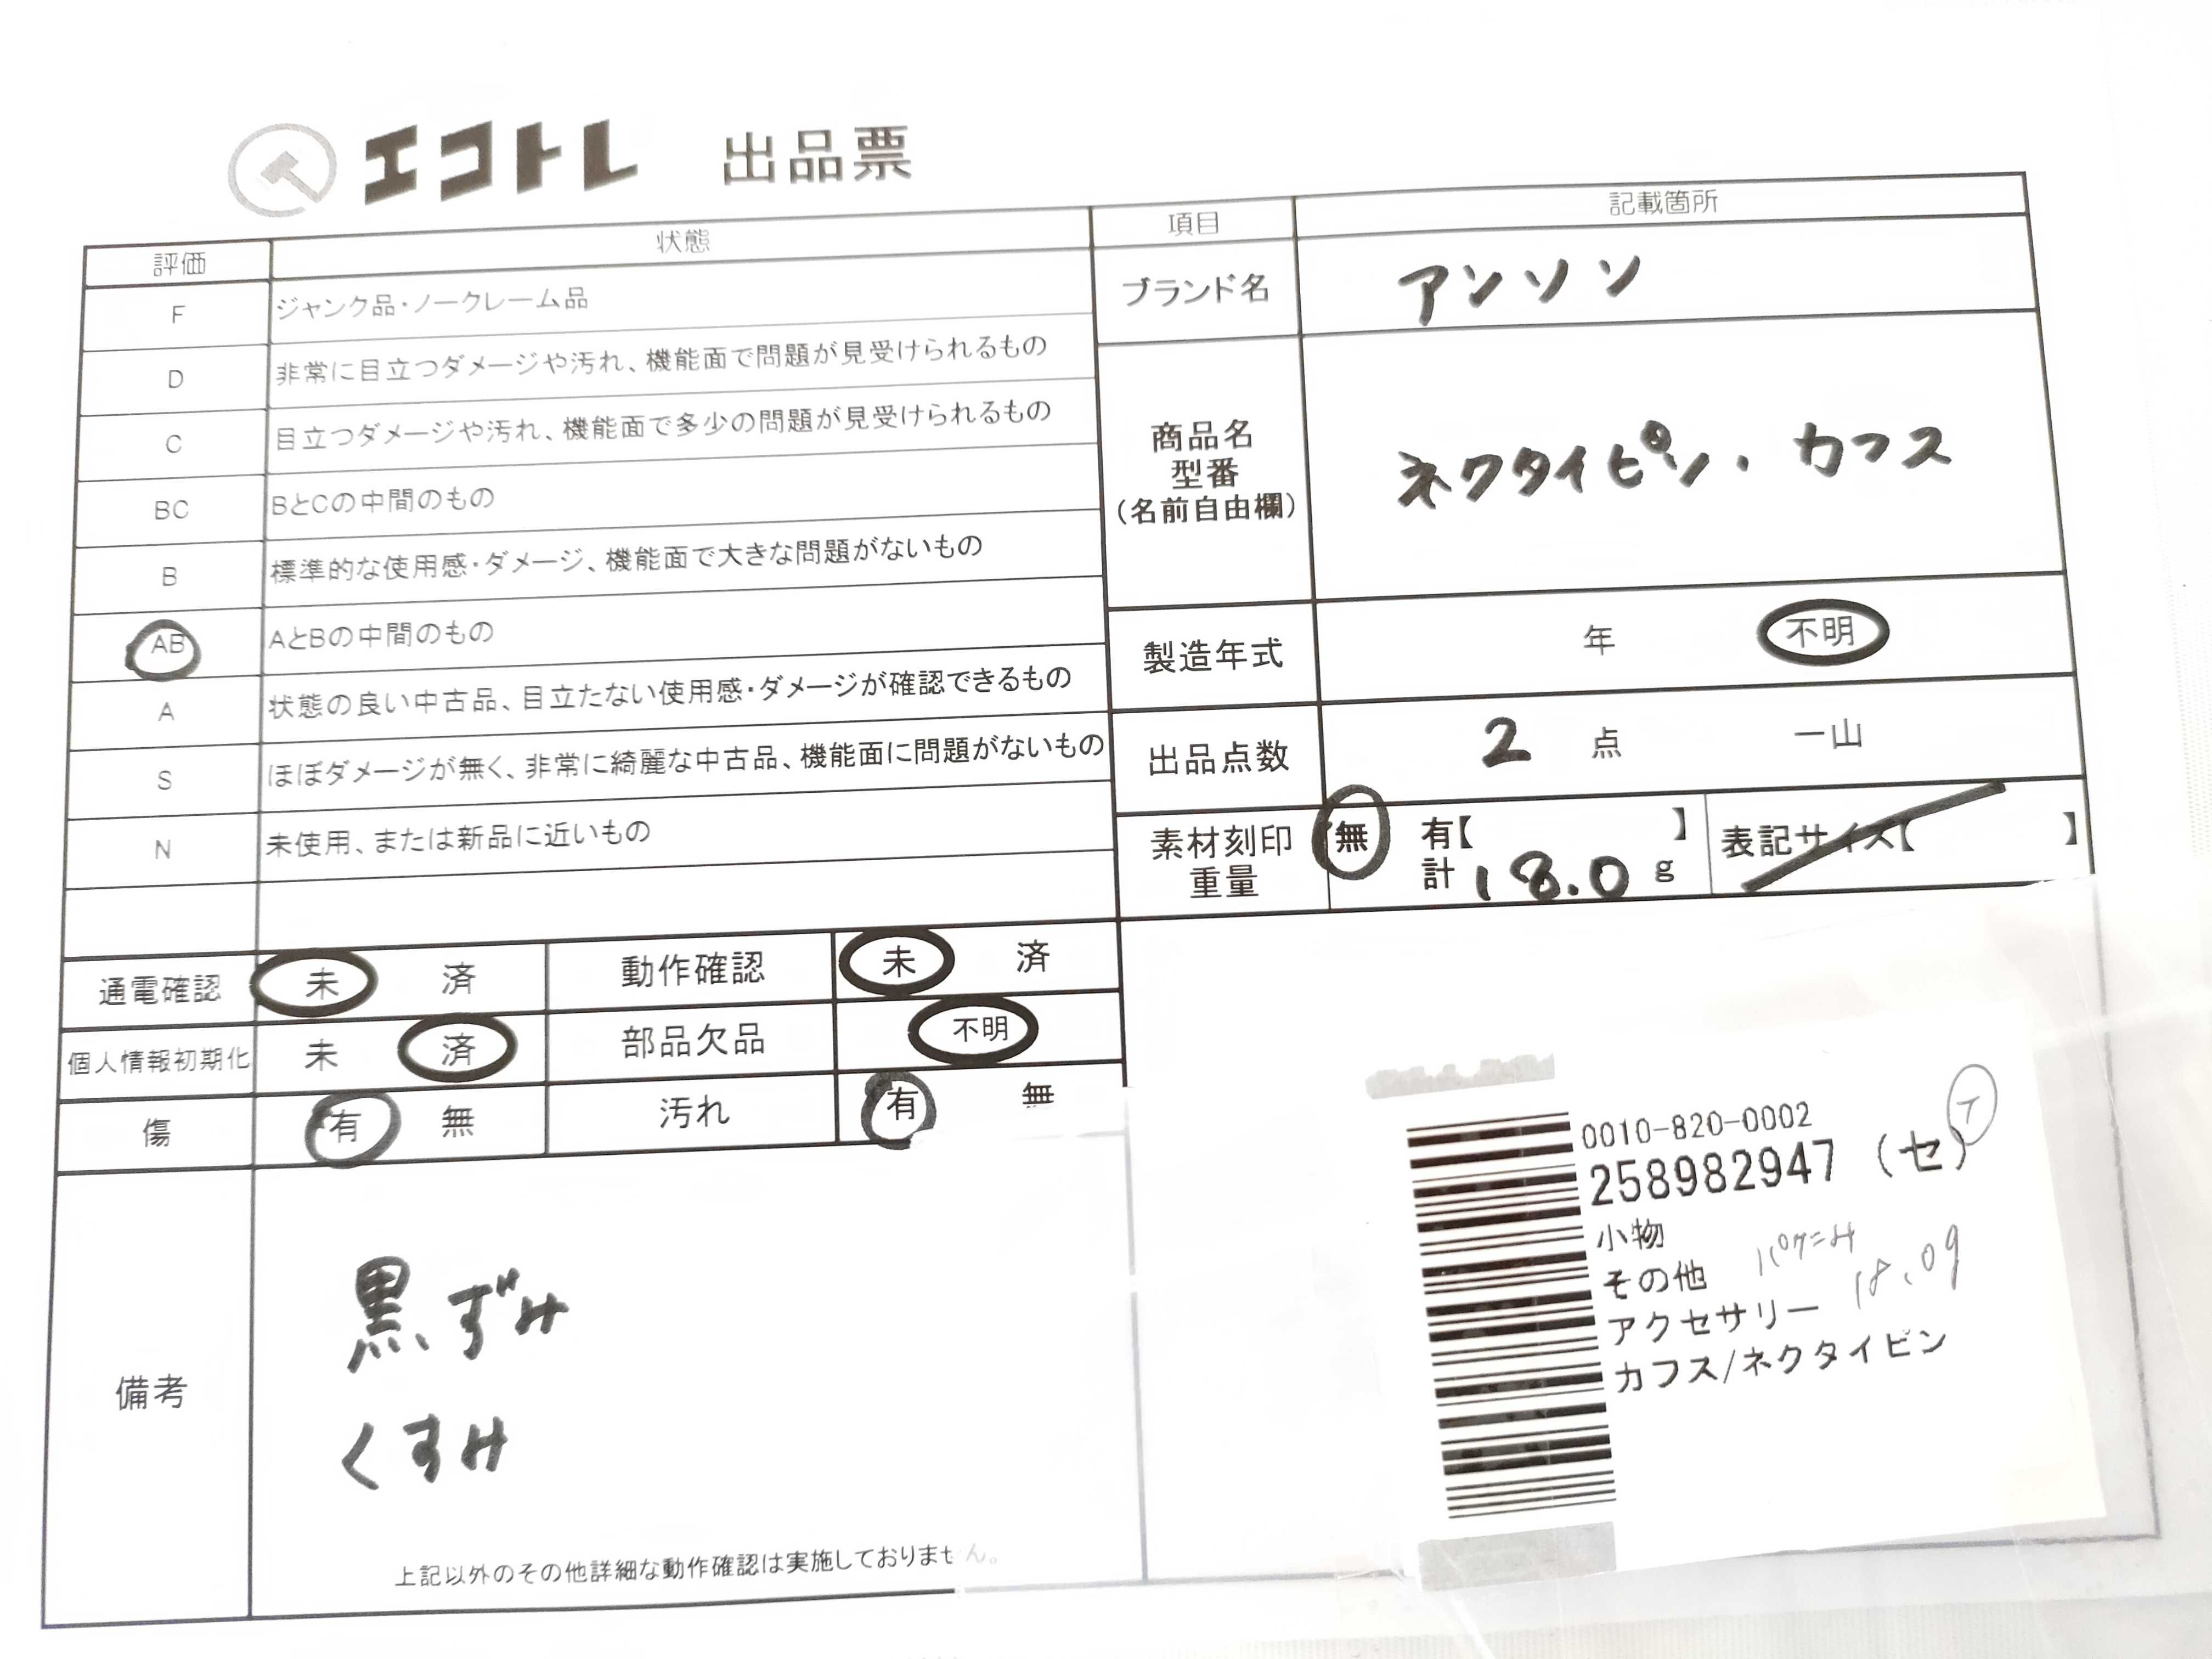 エコトレ 出品票
評価 状態
F ジャンク品・ノークレーム品
D 非常に目立つダメージや汚れ、機能面で問題が見受けられるもの
C 目立つダメージや汚れ、機能面で多少の問題が見受けられるもの
BC BとCの中間のもの
B 標準的な使用感・ダメージ、機能面で大きな問題がないもの
AB AとBの中間のもの
A 状態の良い中古品、目立たない使用感・ダメージが確認できるもの
S ほぼダメージが無く、非常に綺麗な中古品、機能面に問題がないもの
N 未使用、または新品に近いもの
項目 記載箇所
ブランド名 アンソン
商品名
型番
(名前自由欄)
ネクタイピン・カフス
製造年式 年 不明
出品点数 2 点 一山
素材刻印 無 有【 】
重量 計 18.0 g
表記サイズ【 】
通電確認 未 済 動作確認 未 済
個人情報初期化 未 済 部品欠品 不明
傷 有 無 汚れ 有 無
備考
黒ずみ
くすみ
上記以外のその他詳細な動作確認は実施しておりません。
0010-820-0002
258982947 (セ)
小物
その他
アクセサリー 18.0g
カフス/ネクタイピン